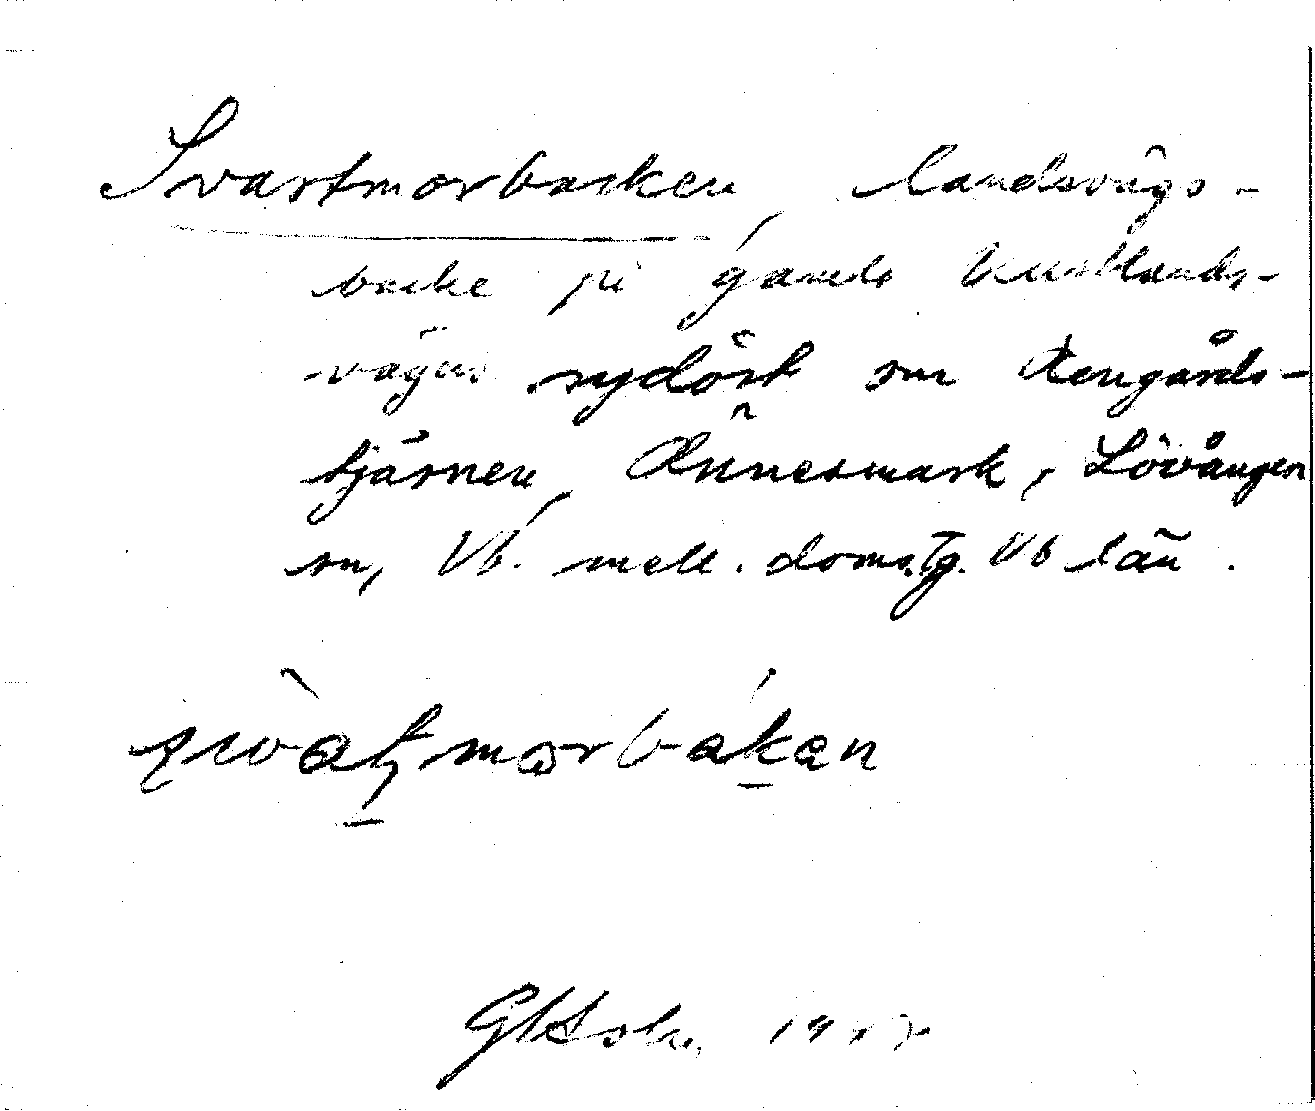 Svartmorbacken, landsvägs-
backe på gamla kustlands-
vägen sydöst om Stengårds-
tjärnen, Önnesmark, Lövånger
sn, Vb. mell. doms.tg. Vb län.
GHolm, 19